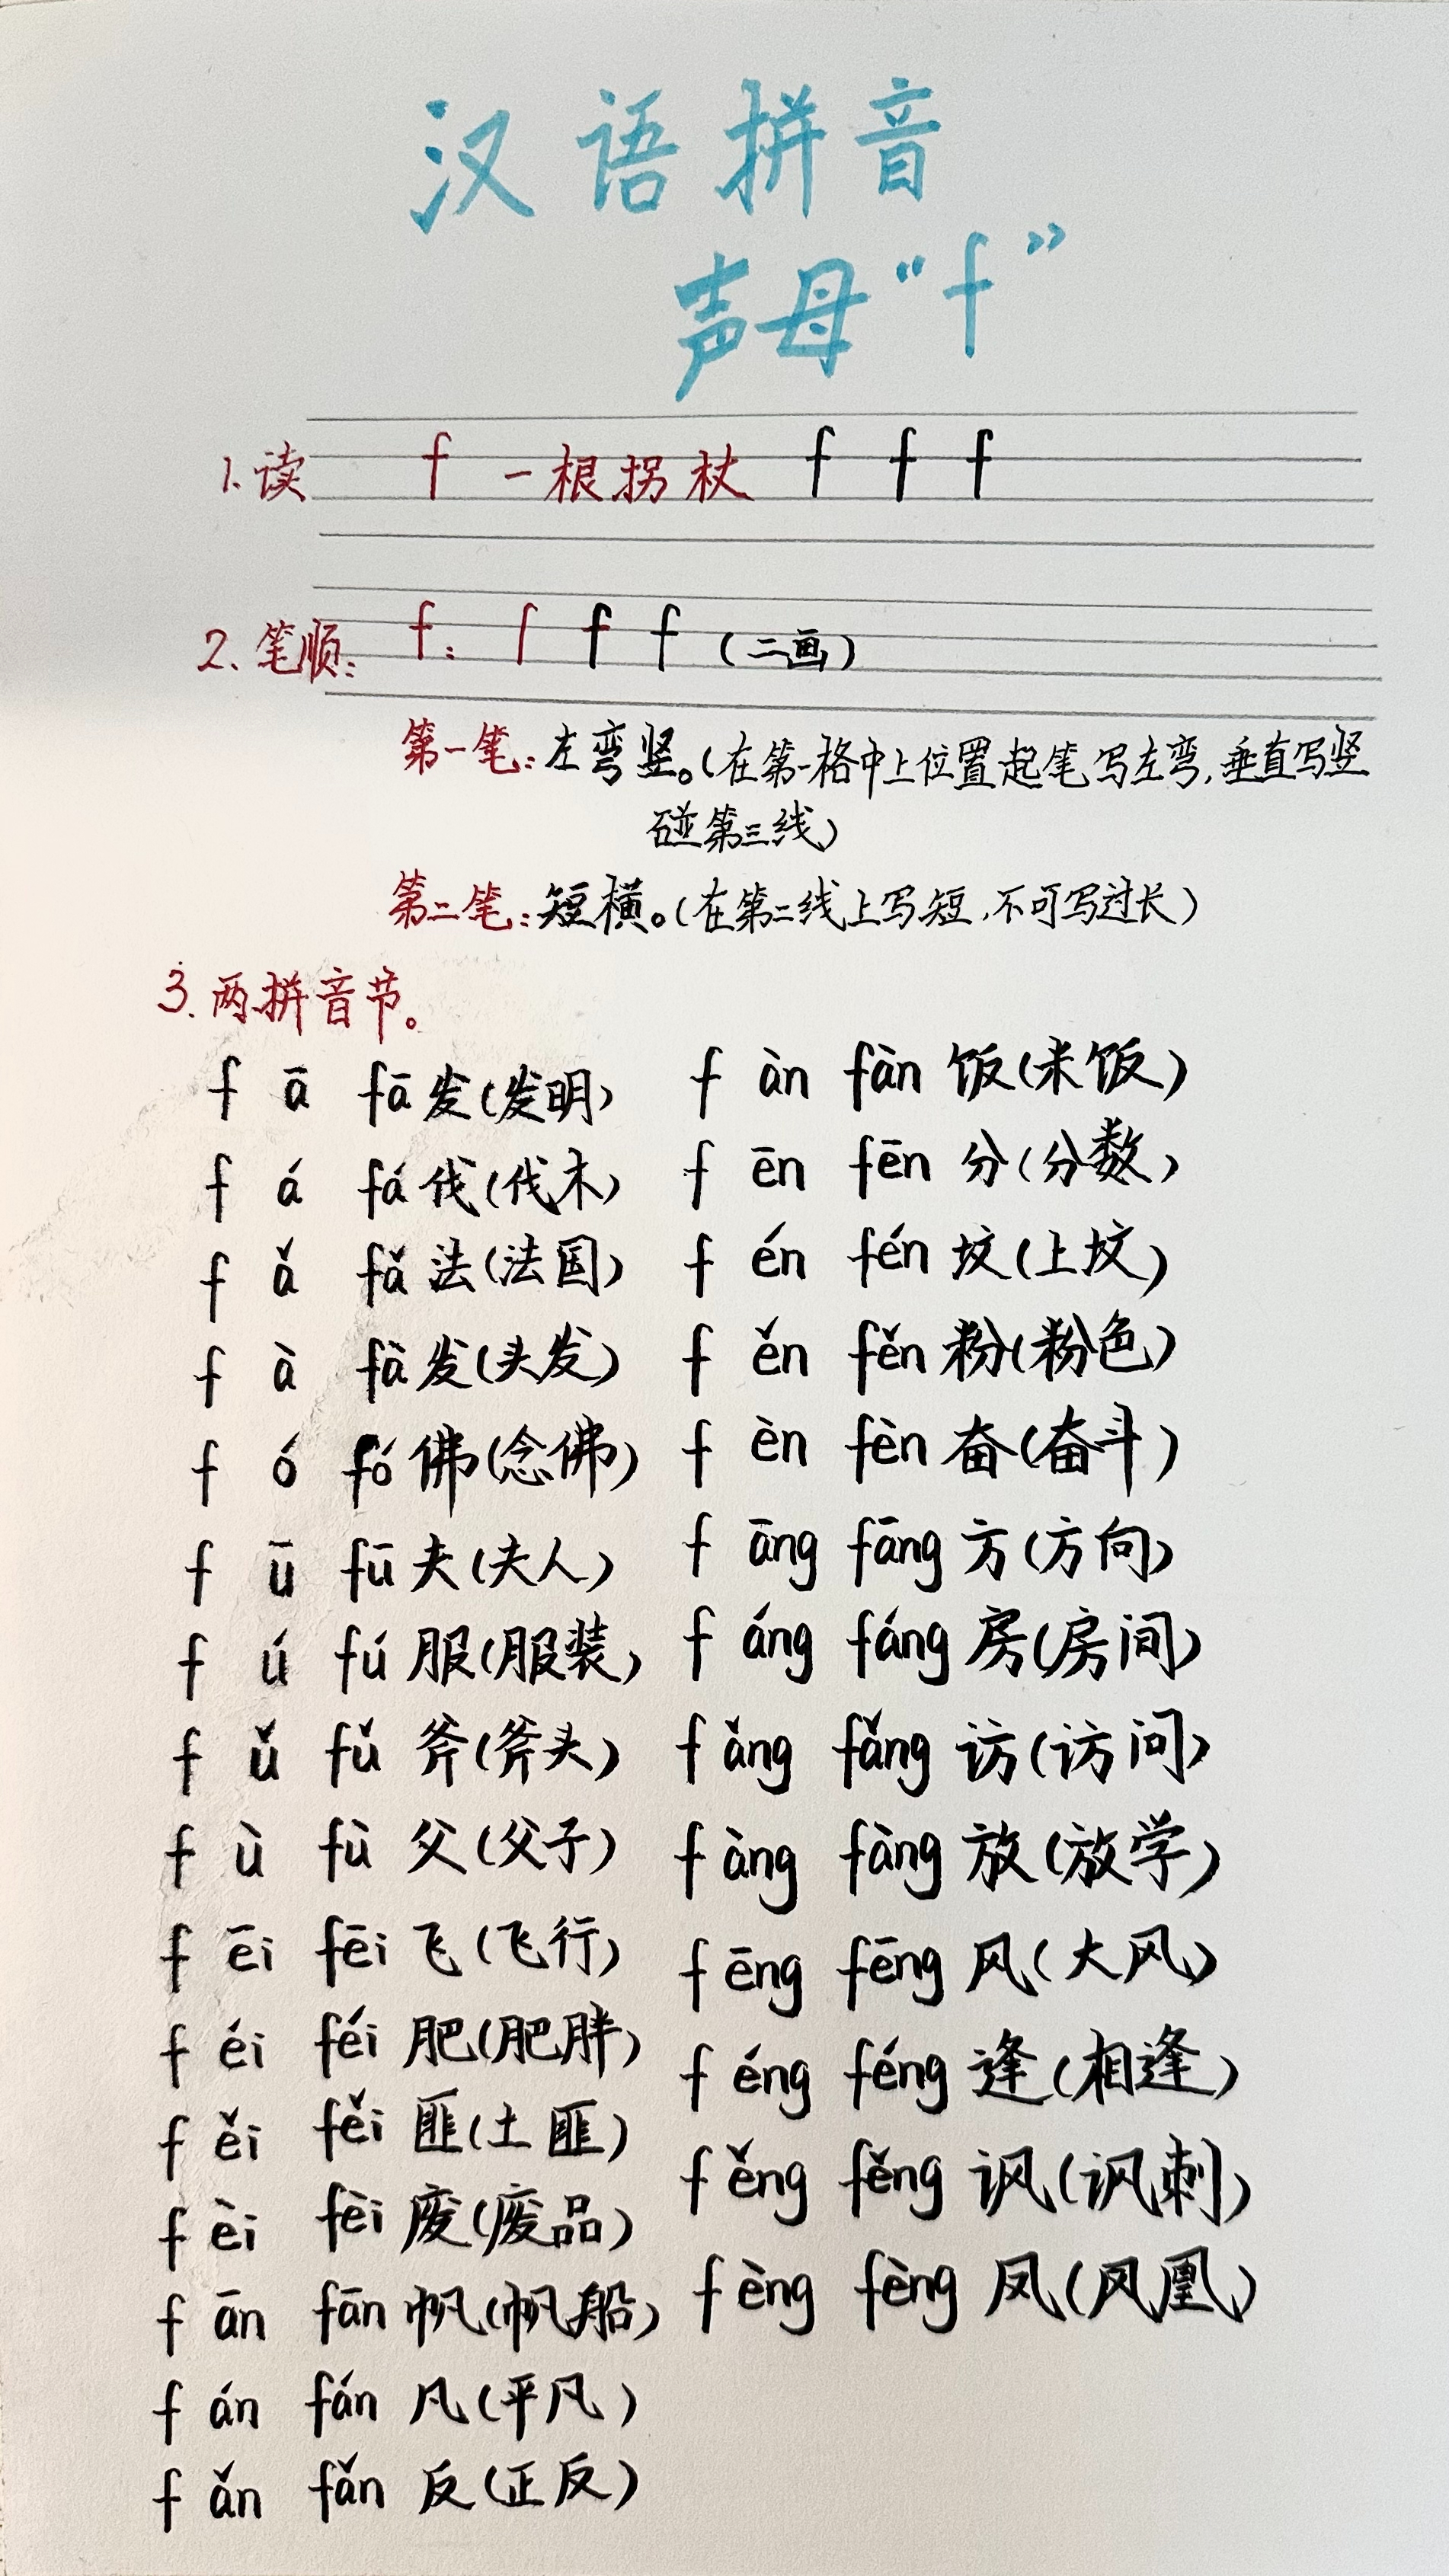 汉语拼音
声母“f”
1.读 f 一根拐杖 f f f
2、笔顺: f: ſ f f (二画)
第一笔:左弯竖。(在第一格中上位置起笔写左弯,垂直写竖
碰第三线)
第二笔:短横。(在第二线上写短,不可写过长)
3.两拼音节。
f ā fā 发(发明)
f á fá 伐(伐木)
f ǎ fǎ 法(法国)
f à fà 发(头发)
f ó fó 佛(念佛)
f ū fū 夫(夫人)
f ú fú 服(服装)
f ǔ fǔ 斧(斧头)
f ù fù 父(父子)
f ēi fēi 飞(飞行)
f éi féi 肥(肥胖)
f ěi fěi 匪(土匪)
f èi fèi 废(废品)
f ān fān 帆(帆船)
f án fán 凡(平凡)
f ǎn fǎn 反(正反)
f àn fàn 饭(米饭)
f ēn fēn 分(分数)
f én fén 坟(上坟)
f ěn fěn 粉(粉色)
f èn fèn 奋(奋斗)
f āng fāng 方(方向)
f áng fáng 房(房间)
f ǎng fǎng 访(访问)
f àng fàng 放(放学)
f ēng fēng 风(大风)
f éng féng 逢(相逢)
f ěng fěng 讽(讽刺)
f èng fèng 凤(凤凰)